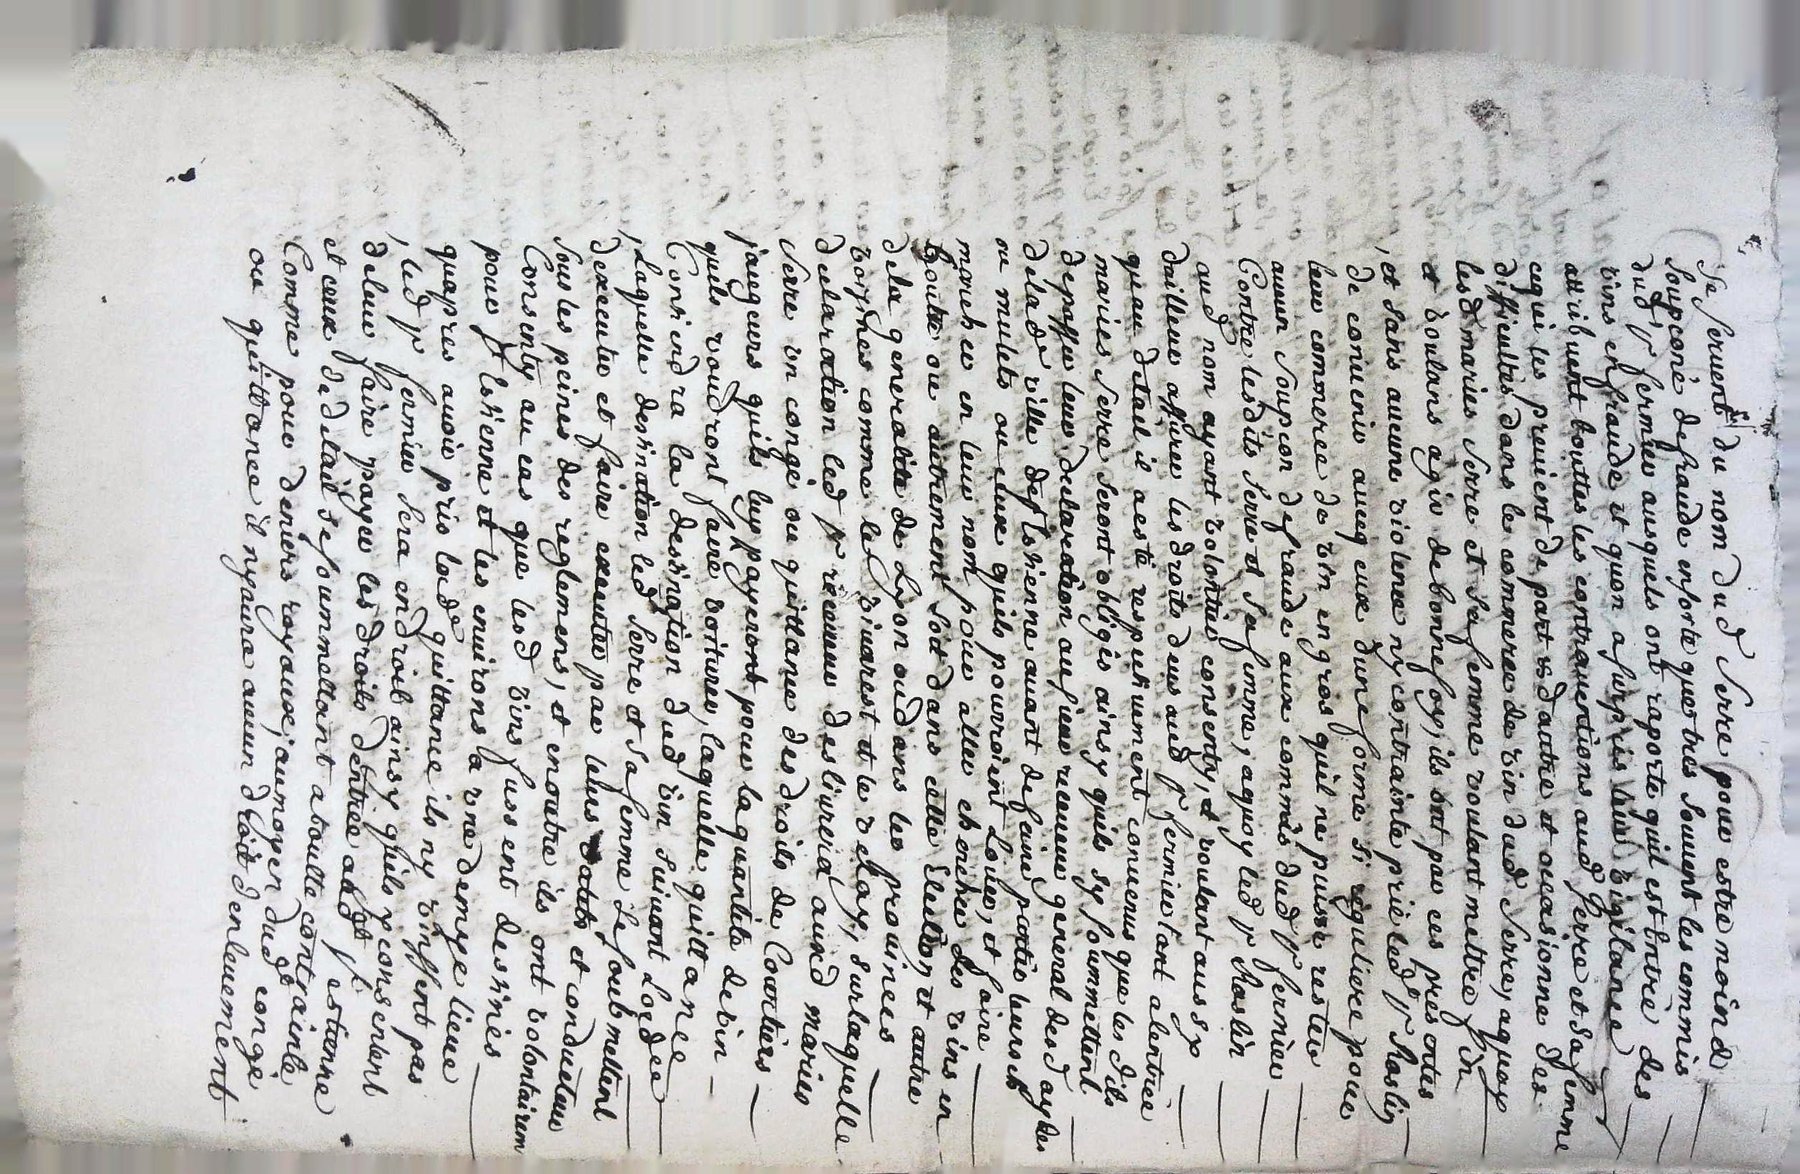 se servent du nom dud Serre pour estre moinds
soupçoné de fraude ensorte que tres souvent les commis
dud sr fermier ausquels ont raporté quil est entré des
vins en fraude et quon a surpris leur vigilance
attribuent touttes les contraventions aud Serre et sa femme
ce qui les previent de part et dautre et occasionne des
difficultés dans le commerce de vin dud Serre, a quoy
lesd mariés Serre et sa femme voulant mettre fin
et voulans agir de bonne foy, ils ont par ces presentes
et sans aucune violence ny contrainte prié led sr Roslin
de convenir avecq eux dune forme si reguliere pour
leur commerce de vin en gros quil ne puisse rester
aucun soupçon de fraude aux commis dud sr fermier
Contre lesdits Serre et sa femme, a quoy led sr Roslin
aud nom ayant volontiers consenty, et voulant aussy
dailleurs assurer les droits deus aud sr fermier tant a lentrée
quau detail il a esté respectivement convenus que lesdits
mariés Serre seront obligés ainsy quils sy soummettent
de passer leur declaration au sieur receveur general desd aydes
de lade ville de st estienne avant de faire partir leurs ch
ou mulets ou ceux quils pourroient Louer, et faire
marcher en leur nom pour aller chercher des vins en
gros ou autrement soit dans cette Election et autre
de la generalité de Lyon ou dans les provinces
voisines comme le vivarest et le velay, sur laquelle
declaration led sr receveur deslivrera ausd mariés
Serre un congé ou quittance des droits de Courtiers
jaugeurs quils luy payeront pour la quantité de vin
quils voudront faire voiturer, laquelle quittance
Contiendra la destination dud vin suivant Lordre
laquelle destination led Serre et sa femme se soubmettent
dexecuter et faire executer par leurs valets et conducteurs
sous les peines des reglemens, et en outre ils ont volontairem
Consenty au cas que lesd vins fussent destinés
pour st estienne et les environs a une demye lieue
quapres avoir pris lade quittance ils ny vinssent pas
led sr fermier sera en droit ainsy quils y consentent
de leur faire payer les droits dentrée aud st estienne
et ceux de detail se soummettant a toutte contrainte
Comme pour deniers royaux, au moyen dud congé
ou quittance il ny aura aucun droit denlevement